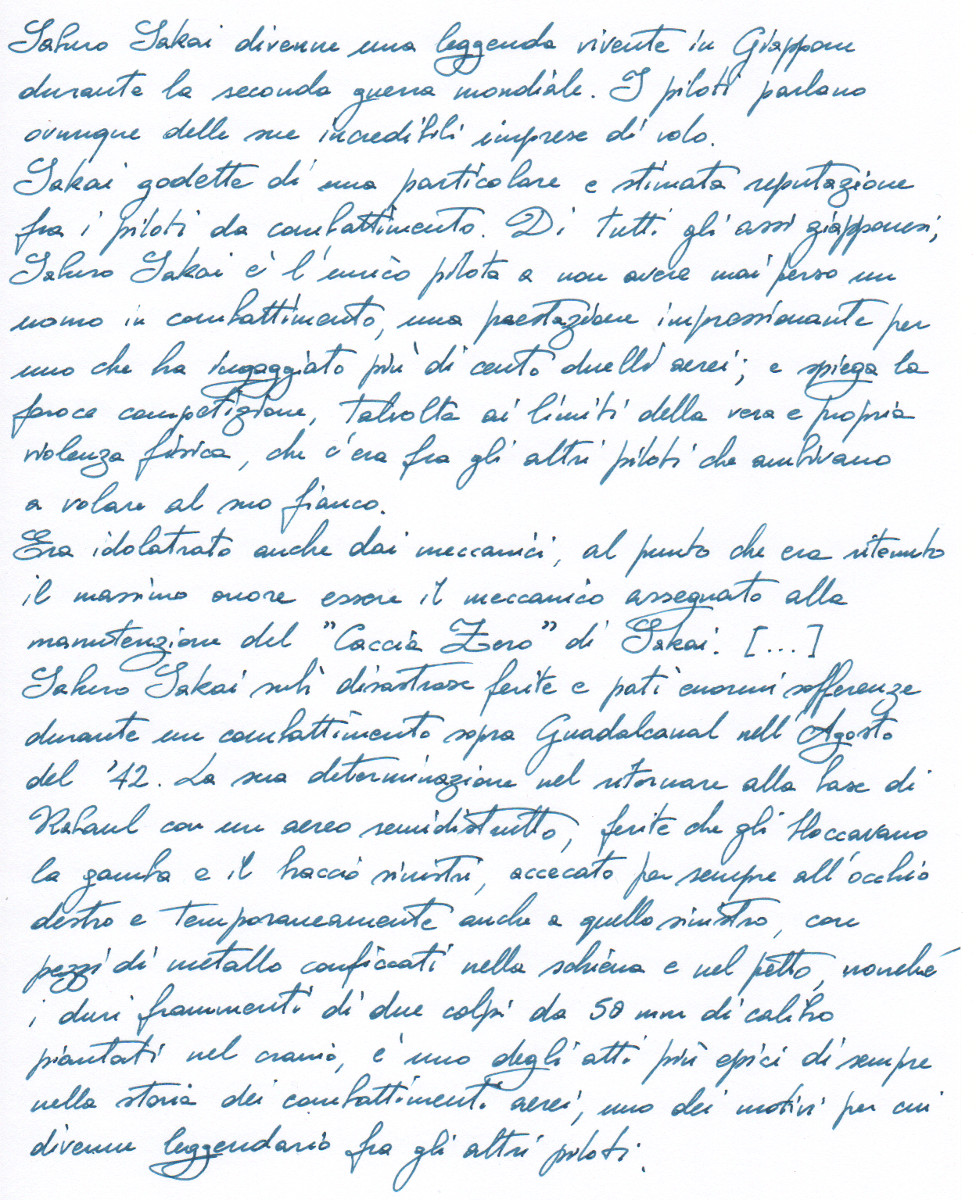 Saburo Sakai divenne una leggenda vivente in Giappone
durante la seconda guerra mondiale. I piloti parlano
ovunque delle sue incredibili imprese di volo.
Sakai godette di una particolare e stimata reputazione
fra i piloti da combattimento. Di tutti gli assi giapponesi,
Saburo Sakai è l'unico pilota a non avere mai perso un
uomo in combattimento, una prestazione impressionante per
uno che ha ingaggiato più di cento duelli aerei; e spiega la
feroce competizione, talvolta ai limiti della vera e propria
violenza fisica, che c'era fra gli altri piloti che ambivano
a volare al suo fianco.
Era idolatrato anche dai meccanici, al punto che era ritenuto
il massimo onore essere il meccanico assegnato alla
manutenzione del "Caccia Zero" di Sakai. [...]
Saburo Sakai subì disastrose ferite e patì enormi sofferenze
durante un combattimento sopra Guadalcanal nell'Agosto
del '42. La sua determinazione nel ritornare alla base di
Rabaul con un aereo semidistrutto, ferite che gli bloccavano
la gamba e il braccio sinistri, accecato per sempre all'occhio
destro e temporaneamente anche a quello sinistro, con
pezzi di metallo conficcati nella schiena e nel petto, nonché
i duri frammenti di due colpi da 50 mm di calibro
piantati nel cranio, è uno degli atti più epici di sempre
nella storia dei combattimenti aerei, uno dei motivi per cui
divenne leggendario fra gli altri piloti.